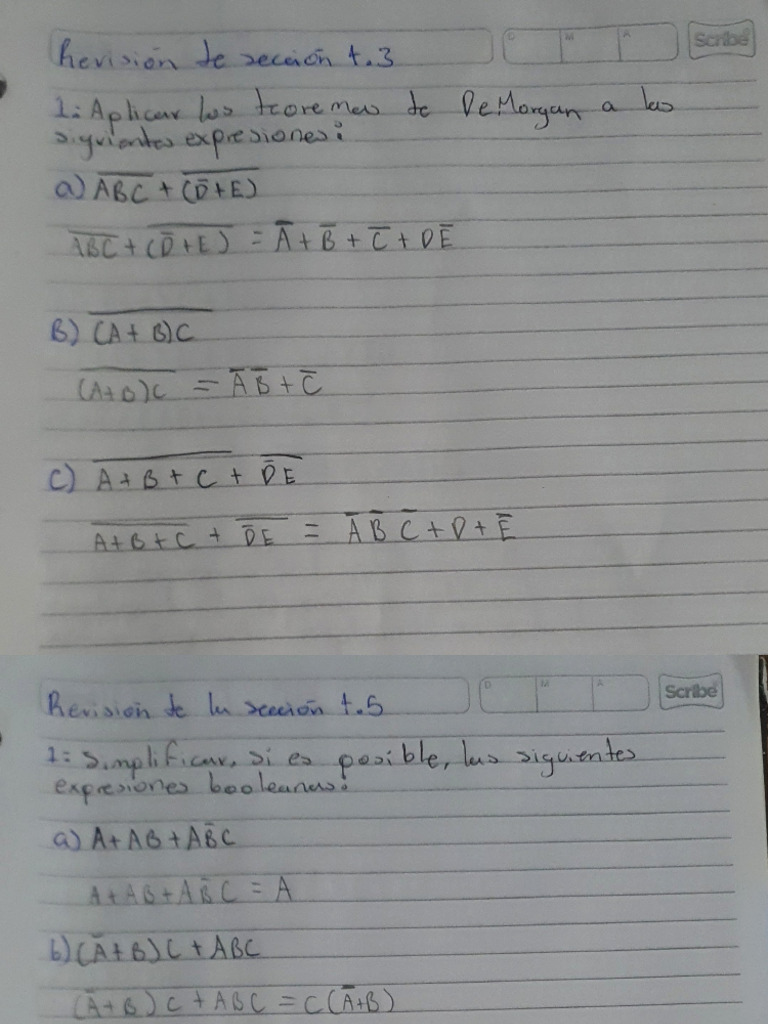 Revisión de sección 4.3
D M A
Scribe
1: Aplicar los teoremas de DeMorgan a las
siguientes expresiones:
a) A̅B̅C̅ + (D̅+E)̅
A̅B̅C̅ + (D̅+E)̅ = A̅ + B̅ + C̅ + DE̅
B) (A + B)C̅
(A+B)C̅ = A̅ B̅ + C̅
C) A + B + C̅ + D̅ E̅
A+B+C̅ + D̅E̅ = A̅ B̅ C̅ + D + E̅
Revisión de la sección 4.5
D M A
Scribe
1: Simplificar, si es posible, las siguientes
expresiones booleanas:
a) A + AB + AB̅C
A + AB + AB̅C = A
b) (A̅+B)C + ABC
(A̅+B)C + ABC = C(A̅+B)